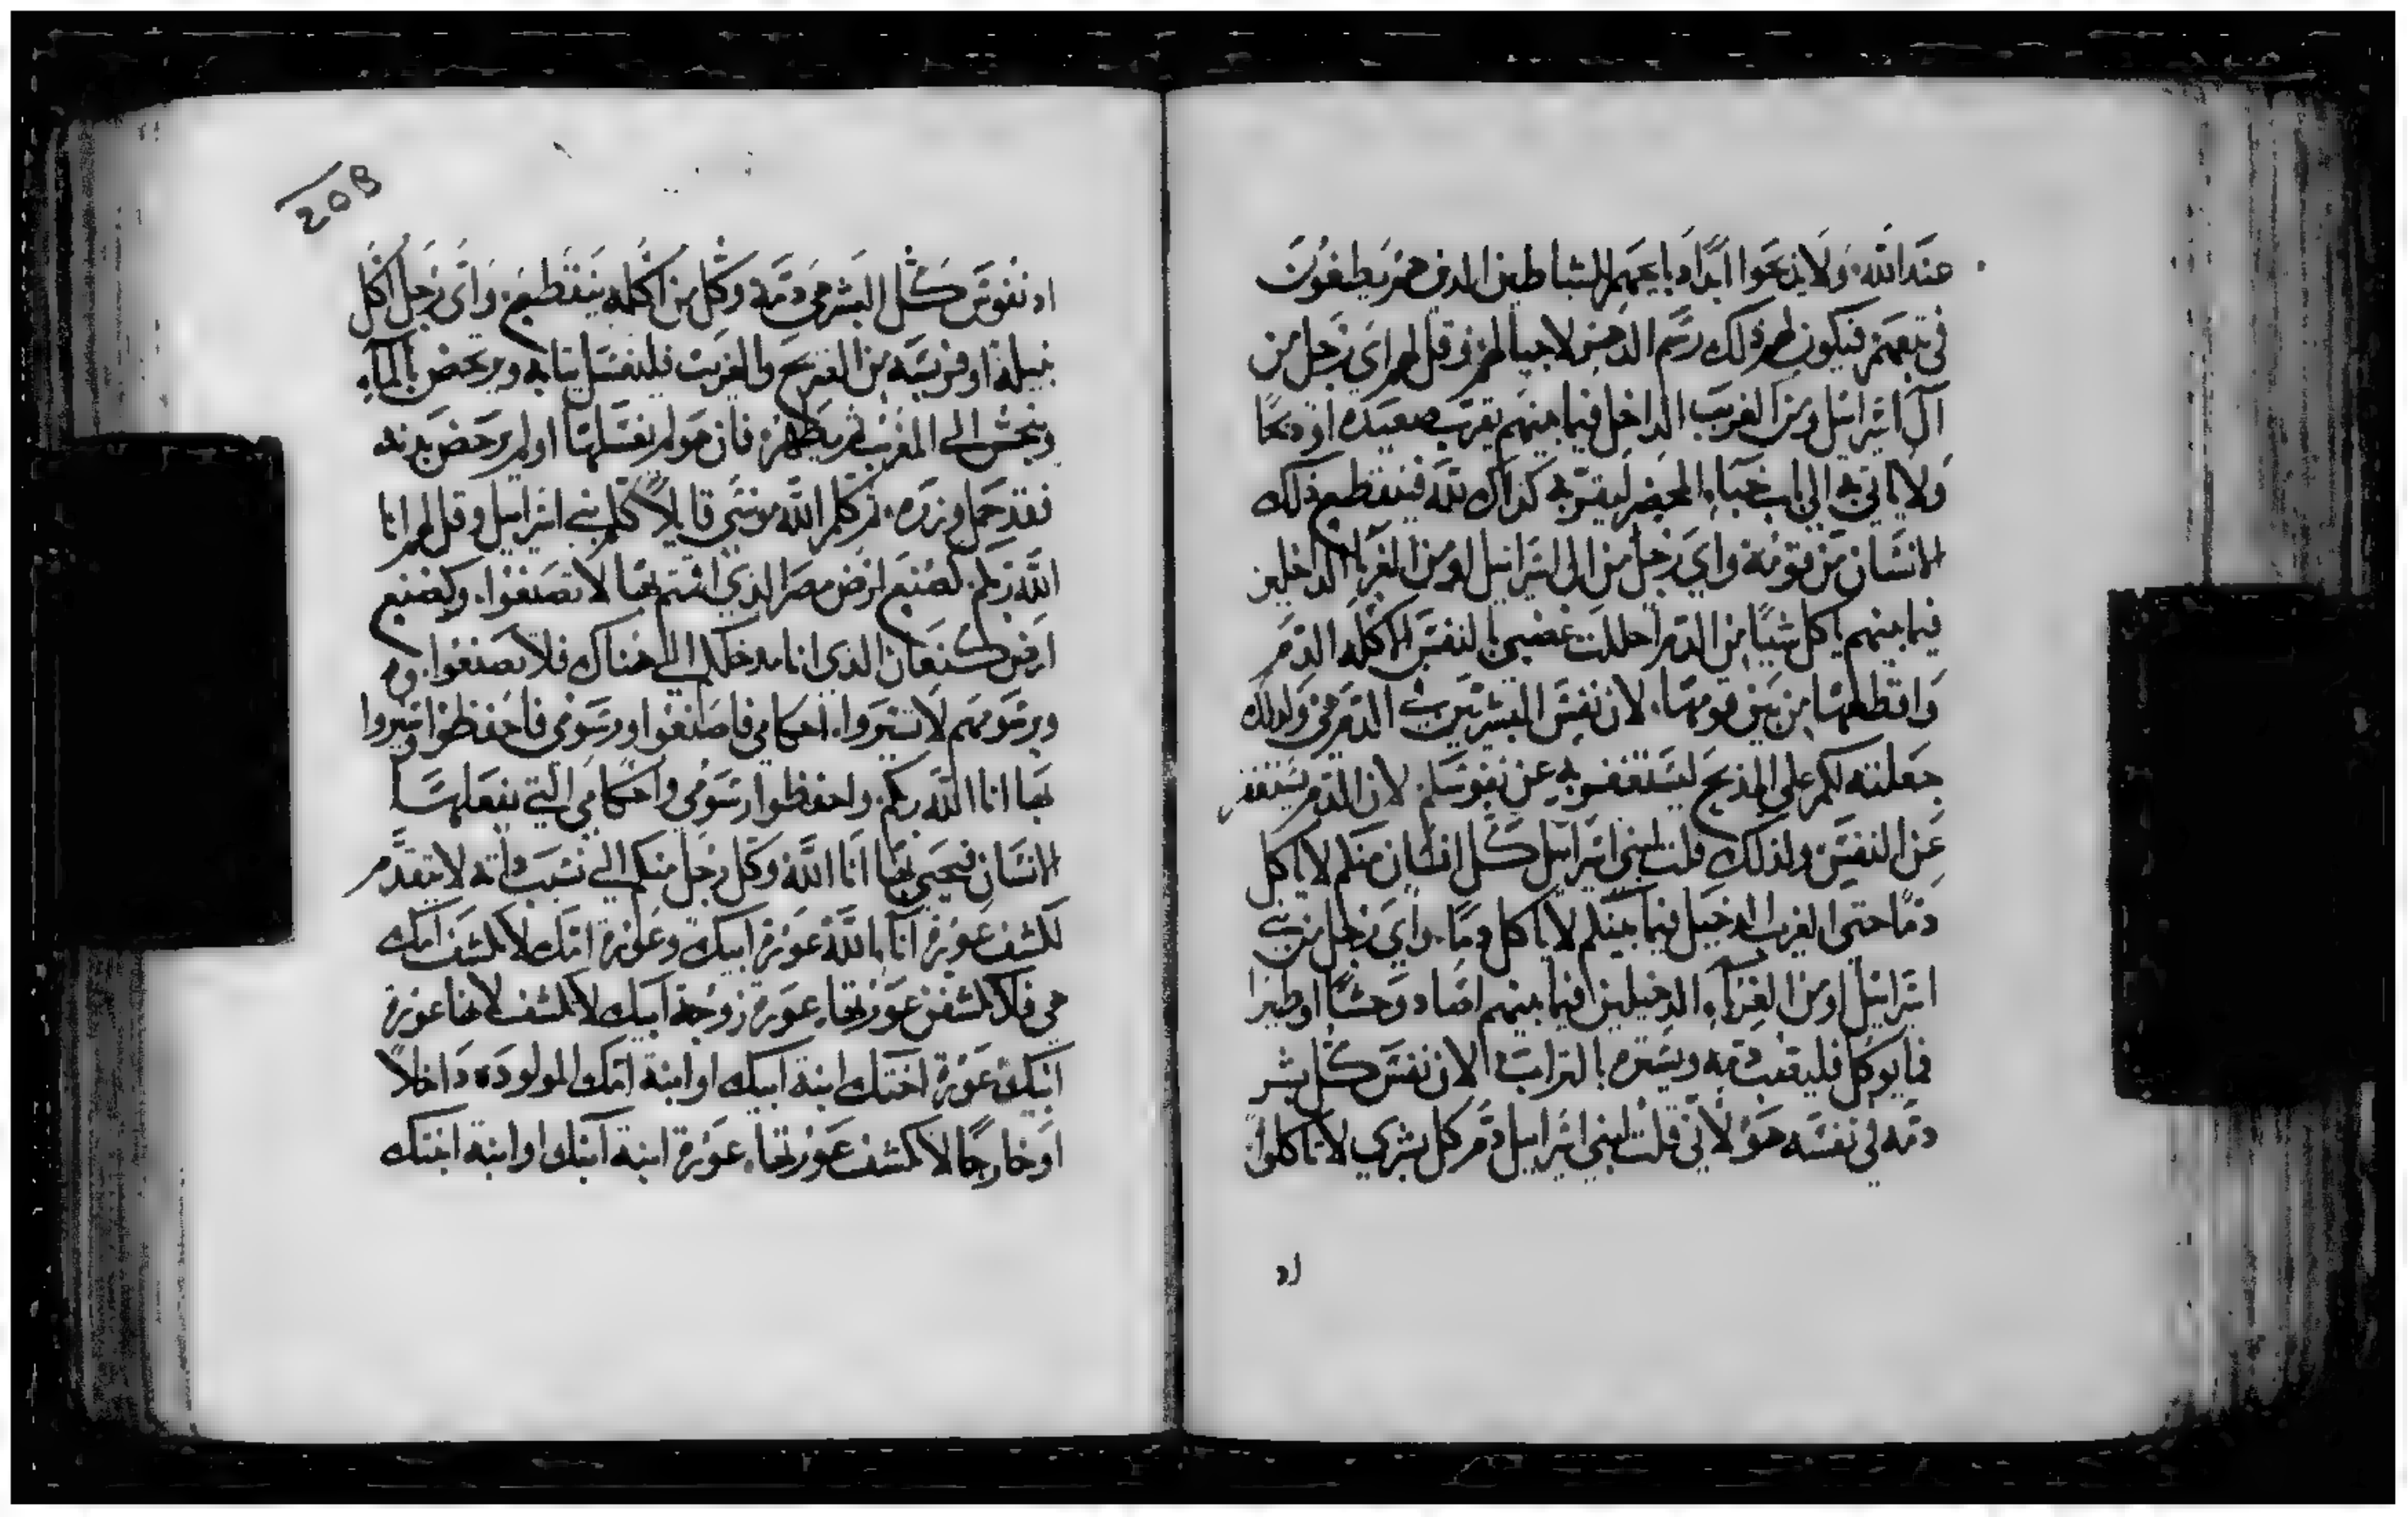 عند الله ولا يذبحوا ابدا دبايحهم للشياطين الدين هم يطغون
في تبعهم فيكون لهم ذلك رسم الدهر لاجيالهم وقل لهم اي رجل من
آل اسراييل ومن الغريب الداخل فيما بينهم يقرب صعيده او دبحا
ولا ياتي به الي باب خباء المحضر ليقربه كذاك لله فينقطع ذلك
الانسان من قومه واي رجل من ال اسراييل او من الغرباء الداخلين
فيما بينهم ياكل شيا من الدم احللت غضبي بالنفس الاكله الدم
واقطعها من بين قومها لان نفس البشريين في الدم هي ولذلك
جعلته لكم علي المذبح ليستغفر به عن نفوسكم لان الدم يستغفر
عن النفس ولذلك قلت لبني اسراييل كل انسان منكم لا ياكل
دما حتي الغريب الدخيل فيما بينكم لا ياكل دما واي رجل من بني
اسراييل او من الغرباء الدخيلين فيما بينهم اصاد وحشا او طيرا
مما يوكل فليصب دمه ويستره بالتراب لان نفس كل بشر
دمه في نفسه هو لاني قلت لبني اسراييل دم كل بشري لا تاكلوا
اد
208
اد نفوس كل البشر هي دمه وكل من اكله ينقطع واي رجل اكل
نبيلة او فريسه من الصريح والغريب فليغسل ثيابه ويرحض بالماء
وينجس الي المغرب ثم يطهر فان هو لم يغسلها او لم يرحض بدنه
فقد حمل وزره ثم كلم الله موسي قايلا كلم بني اسراييل وقل لهم انا
الله ربكم كصنيع ارض مصر الذي اقمتم بها لا تصنعوا وكصنيع
ارض كنعان الذي انا مدخلكم الي هناك فلا تصنعوا
وبرسومهم لا تسيروا احكامي فاصنعوا ورسومي فاحفظوا وسيروا
بها انا الله ربكم واحفظوا رسومي واحكامي التي يفعلها
الانسان فيحيي بها انا الله وكل رجل منكم الي نسيب ذاته لا يتقدم
لكشف عورة انا الله عورة ابيك وعورة امك لا تكشف امك
هي فلا تكشفن عورتها عورة زوجة ابيك لا تكشف لانها عورة
ابيك عورة اختك ابنة ابيك او ابنة امك المولوده داخلا
او خارجا لا تكشف عورتها عورة ابنة ابنك او ابنة ابنتك